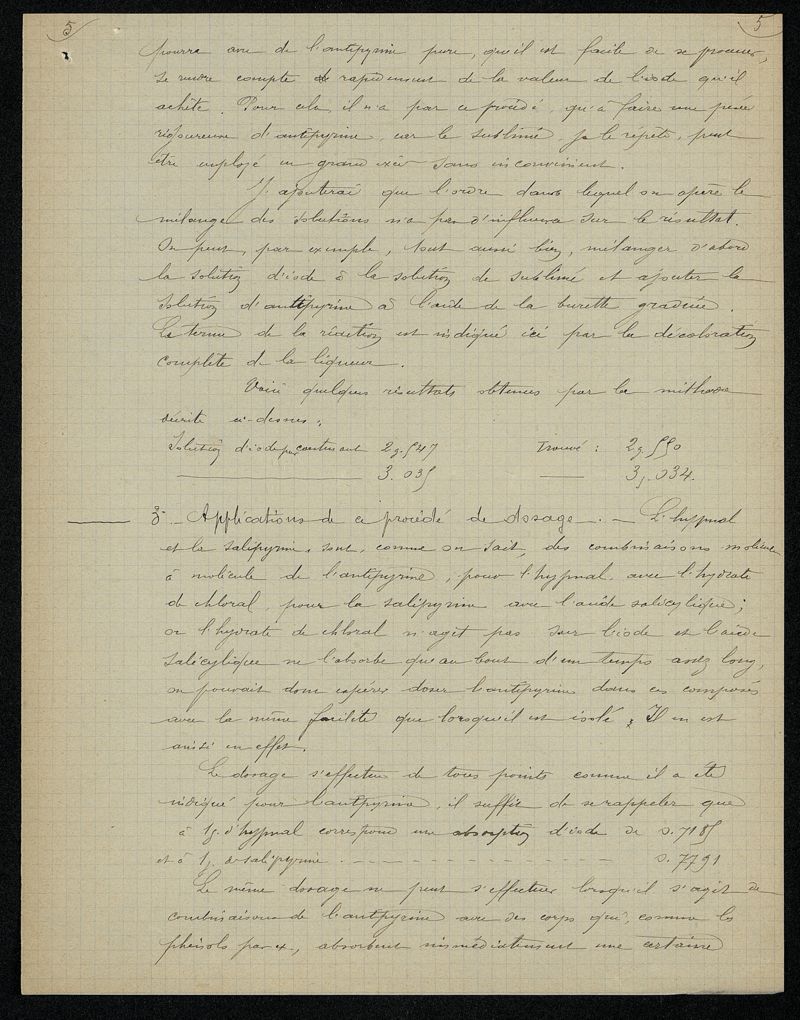 5 5
pourra avec de l'antipyrine pure, qu'il est facile de se procurer,
se rendre compte rapidement de la valeur de l'iode qu'il
achète. Pour cela, il n'a par ce procédé, qu'à faire une pesée
rigoureuse d'antipyrine, car le sublimé, je le répète, peut
être employé en grand excès sans inconvénient.
J'ajouterai que l'ordre dans lequel on opère le
mélange des solutions n'a pas d'influence sur le résultat.
On peut, par exemple, tout aussi bien, mélanger d'abord
la solution d'iode à la solution de sublimé et ajouter la
solution d'antipyrine à l'aide de la burette graduée.
Le terme de la réaction est indiqué ici par la décoloration
complète de la liqueur.
Voici quelques résultats obtenus par la méthode
décrite ci-dessus:
Solution d'iode pur contenant 2g.547 Trouvé: 2g.550
—— 3.035 —— 3g.034.
—— 3°- Applications de ce procédé de dosage. — L'hypnal
et la salipyrine, sont, comme on sait, des combinaisons molécule
à molécule de l'antipyrine, pour l'hypnal, avec l'hydrate
de chloral, pour la salipyrine avec l'acide salicylique;
or l'hydrate de chloral n'agit pas sur l'iode et l'acide
salicylique ne l'absorbe qu'au bout d'un temps assez long,
on pouvait donc espérer doser l'antipyrine dans ces composés
avec la même facilité que lorsqu'il est isolé. Il en est
ainsi en effet.
Le dosage s'effectue de tous points comme il a été
indiqué pour l'antipyrine, il suffit de se rappeler que
à 1g. d'hypnal correspond une absorption d'iode de 0.7185
et à 1g. de salipyrine - - - - - - - - 0.7791
Le même dosage ne peut s'effectuer lorsqu'il s'agit de
combinaisons de l'antipyrine avec des corps qui, comme les
phénols par ex., absorbent immédiatement une certaine